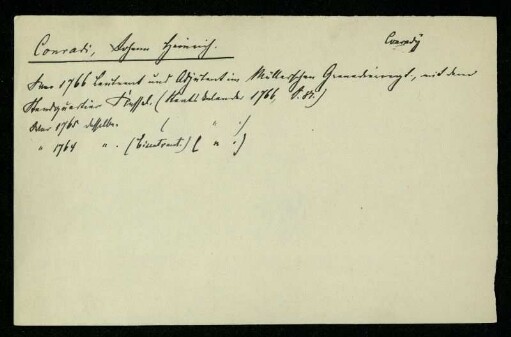 Conradi, Johann Heinrich.
Conrady
War 1766 Leutnant und Adjutant im Müllerschen Grenadierregt, mit dem
Standquartier Kassel. (Staatskalender 1766, S. 31.)
Oder 1765 desselbe. ( " .)
" 1764 " . ( " .)